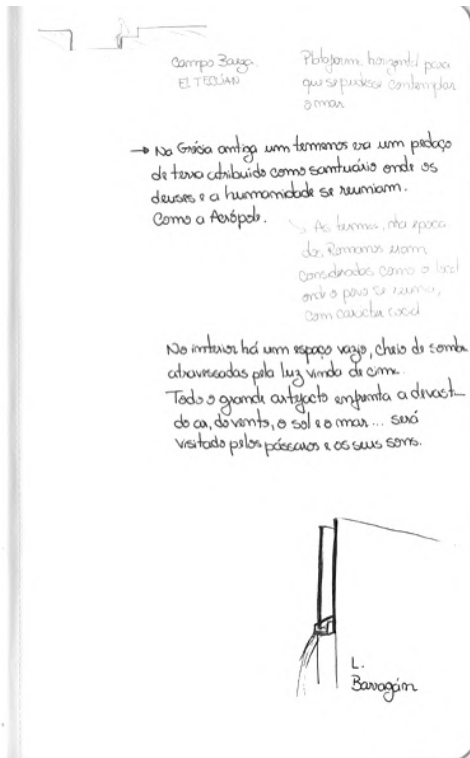 Campo Baeza.
EL TECUÁN
Plataforma horizontal para
que se pudesse contemplar
o mar
→ Na Grécia antiga um temenos era um pedaço
de terra atribuido como santuário onde os
deuses e a humanidade se reuniam.
Como a Acrópole.
↘ As termas, na época
dos Romanos eram
consideradas como o local
onde o povo se reunia,
com carácter social
No interior há um espaço vazio, cheio de sombras
atravessadas pela luz vinda de cima.
Todo o grande artefacto enfrenta a devast
do ar, do vento, o sol e o mar... será
visitado pelos pássaros e os seus sons.
L.
Barragán